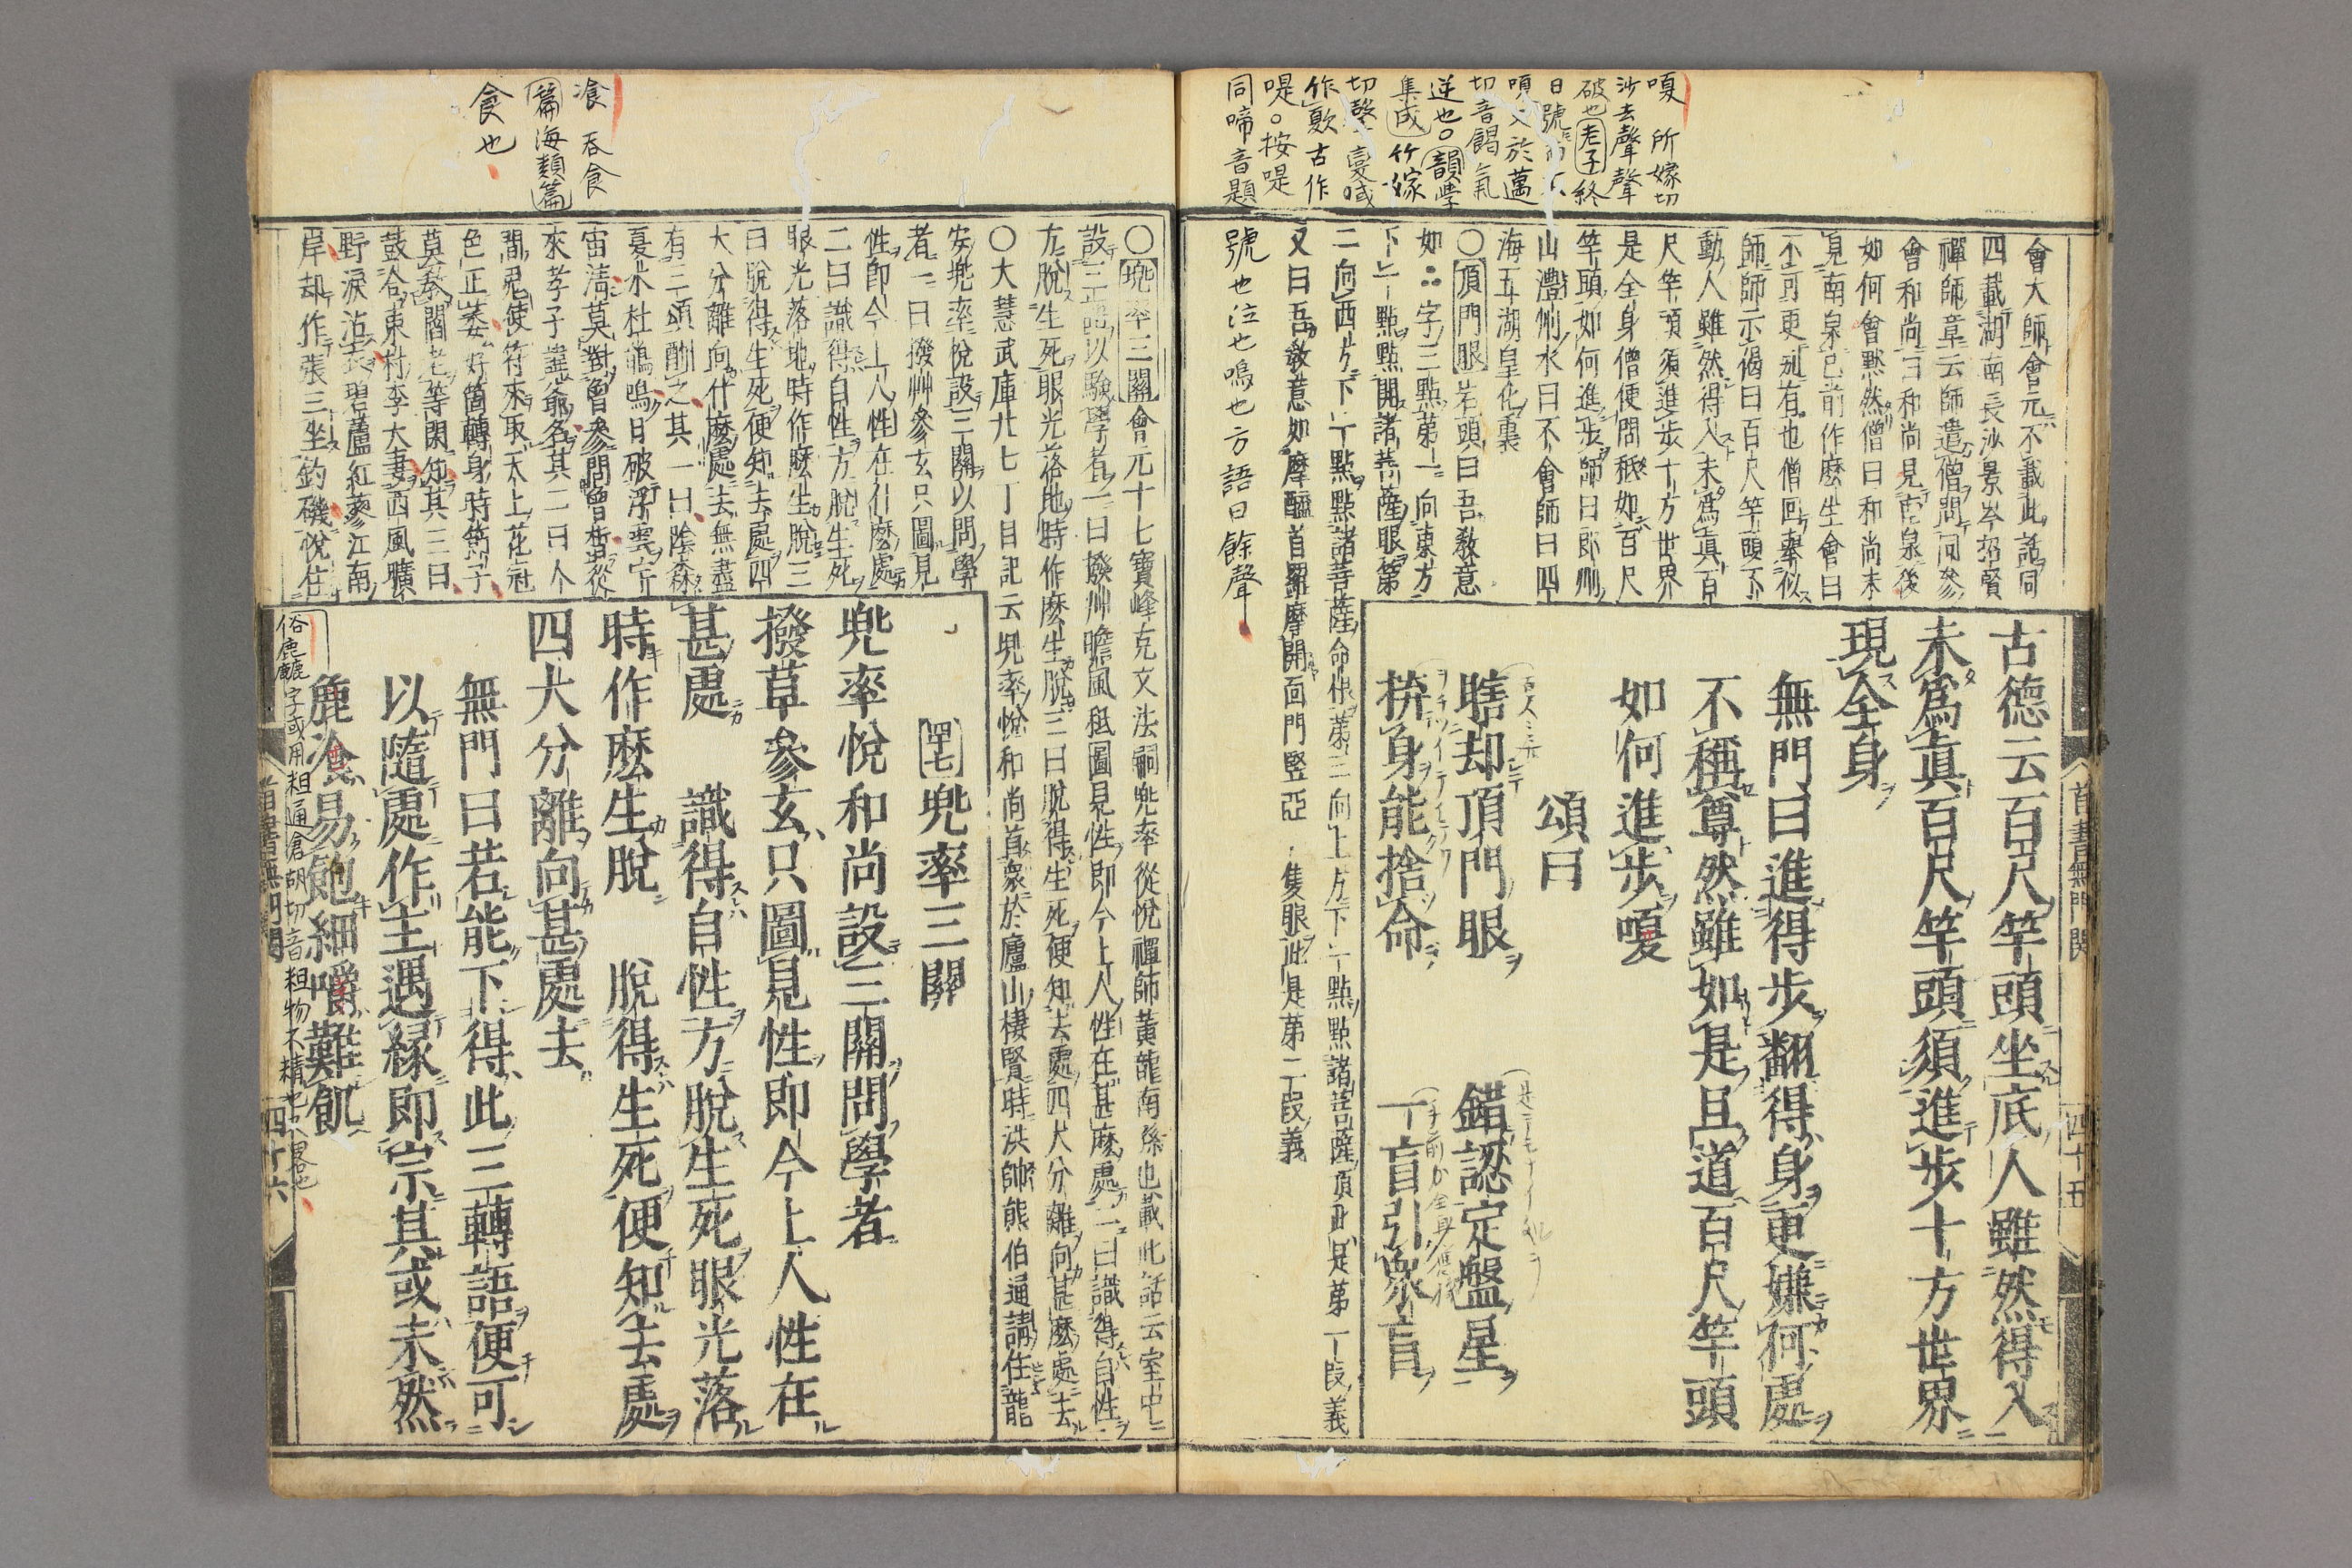 嗄 所嫁切
沙去聲聲
破也老子終
日號而不
嗄又於邁
切音餲氣
逆也○韻學
集成竹嫁
切聲變
作歎古作
唲○按唲
同啼音題
號也泣也鳴也方語曰餘聲
會大師會元不載此話同
四載湖南長沙景岑招賢
禪師章云師遣僧問同參
會和尚曰和尚見南泉後
如何會默然僧曰和尚未
見南泉已前作麼生會曰
不可更別有也僧回舉似
師師示偈曰百尺竿頭不
動人雖然得入未爲眞百
尺竿頭須進步十方世界
是全身僧便問秪如百尺
竿頭如何進步師曰朗州
山澧州水曰不會師曰四
海五湖皇化裏
○頂門眼 岩頭曰吾教意
如∴字三點第一向東方
下一點點開諸菩薩眼第
二向西方下一點點諸菩薩命根第三向上方下一點點諸菩薩頂此是第一段義
又曰吾教意如摩醯首羅摩開面門竪亞一隻眼此是第二段義
古德云百尺竿頭坐底人雖然得入
未爲眞百尺竿頭須進步十方世界
現全身
無門曰進得步翻得身更嫌何處
不稱尊然雖如是且道百尺竿頭
如何進步嗄
頌曰
瞎却頂門眼 錯認定盤星
拚身能捨命 一盲引衆盲
首書無門関 四十五
飡 吞食
篇海類篇
食也
○兠率三關 會元十七寶峰克文法嗣兠率從悅禪師黃龍南孫也載此話云室中
設三語以驗學者一曰撥艸瞻風秪圖見性即今上人性在甚麼處二曰識得自性
方脫生死眼光落地時作麼生脫三曰脫得生死便知去處四大分離向甚麼處去
○大慧武庫廿七丁目記云兠率悅和尚首衆於廬山棲賢時洪帥熊伯通請住龍
安兠率悅設三關以問學
者一曰撥艸參玄只圖見
性即今上人性在什麼處
二曰識得自性方脫生死
眼光落地時作麼生脫三
曰脫得生死便知去處四
大分離向什麼處去無盡
有三頌酬之其一曰陰森
夏木杜鵑鳴日破浮雲宇
宙淸莫對曾參問曾晳從
來孝子諱爺名其二曰人
間鬼使符來取天上花冠
色正萎好箇轉身時節子
莫教閻老等閑知其三曰
鼓合東村李大妻西風曠
野淚沾衣碧蘆紅蓼江南
岸却作張三坐釣磯悅住
四十七 兠率三關
兠率悅和尚設三關問學者
撥草參玄只圖見性即今上人性在
甚處 識得自性方脫生死眼光落
時作麼生脫 脫得生死便知去處
四大分離向甚處去
無門曰若能下得此三轉語便可
以隨處作主遇緣即宗其或未然
麁飡易飽細嚼難飢
俗麁麤字或用粗通滄胡切音粗物不精也略也
首書無門関 四十六